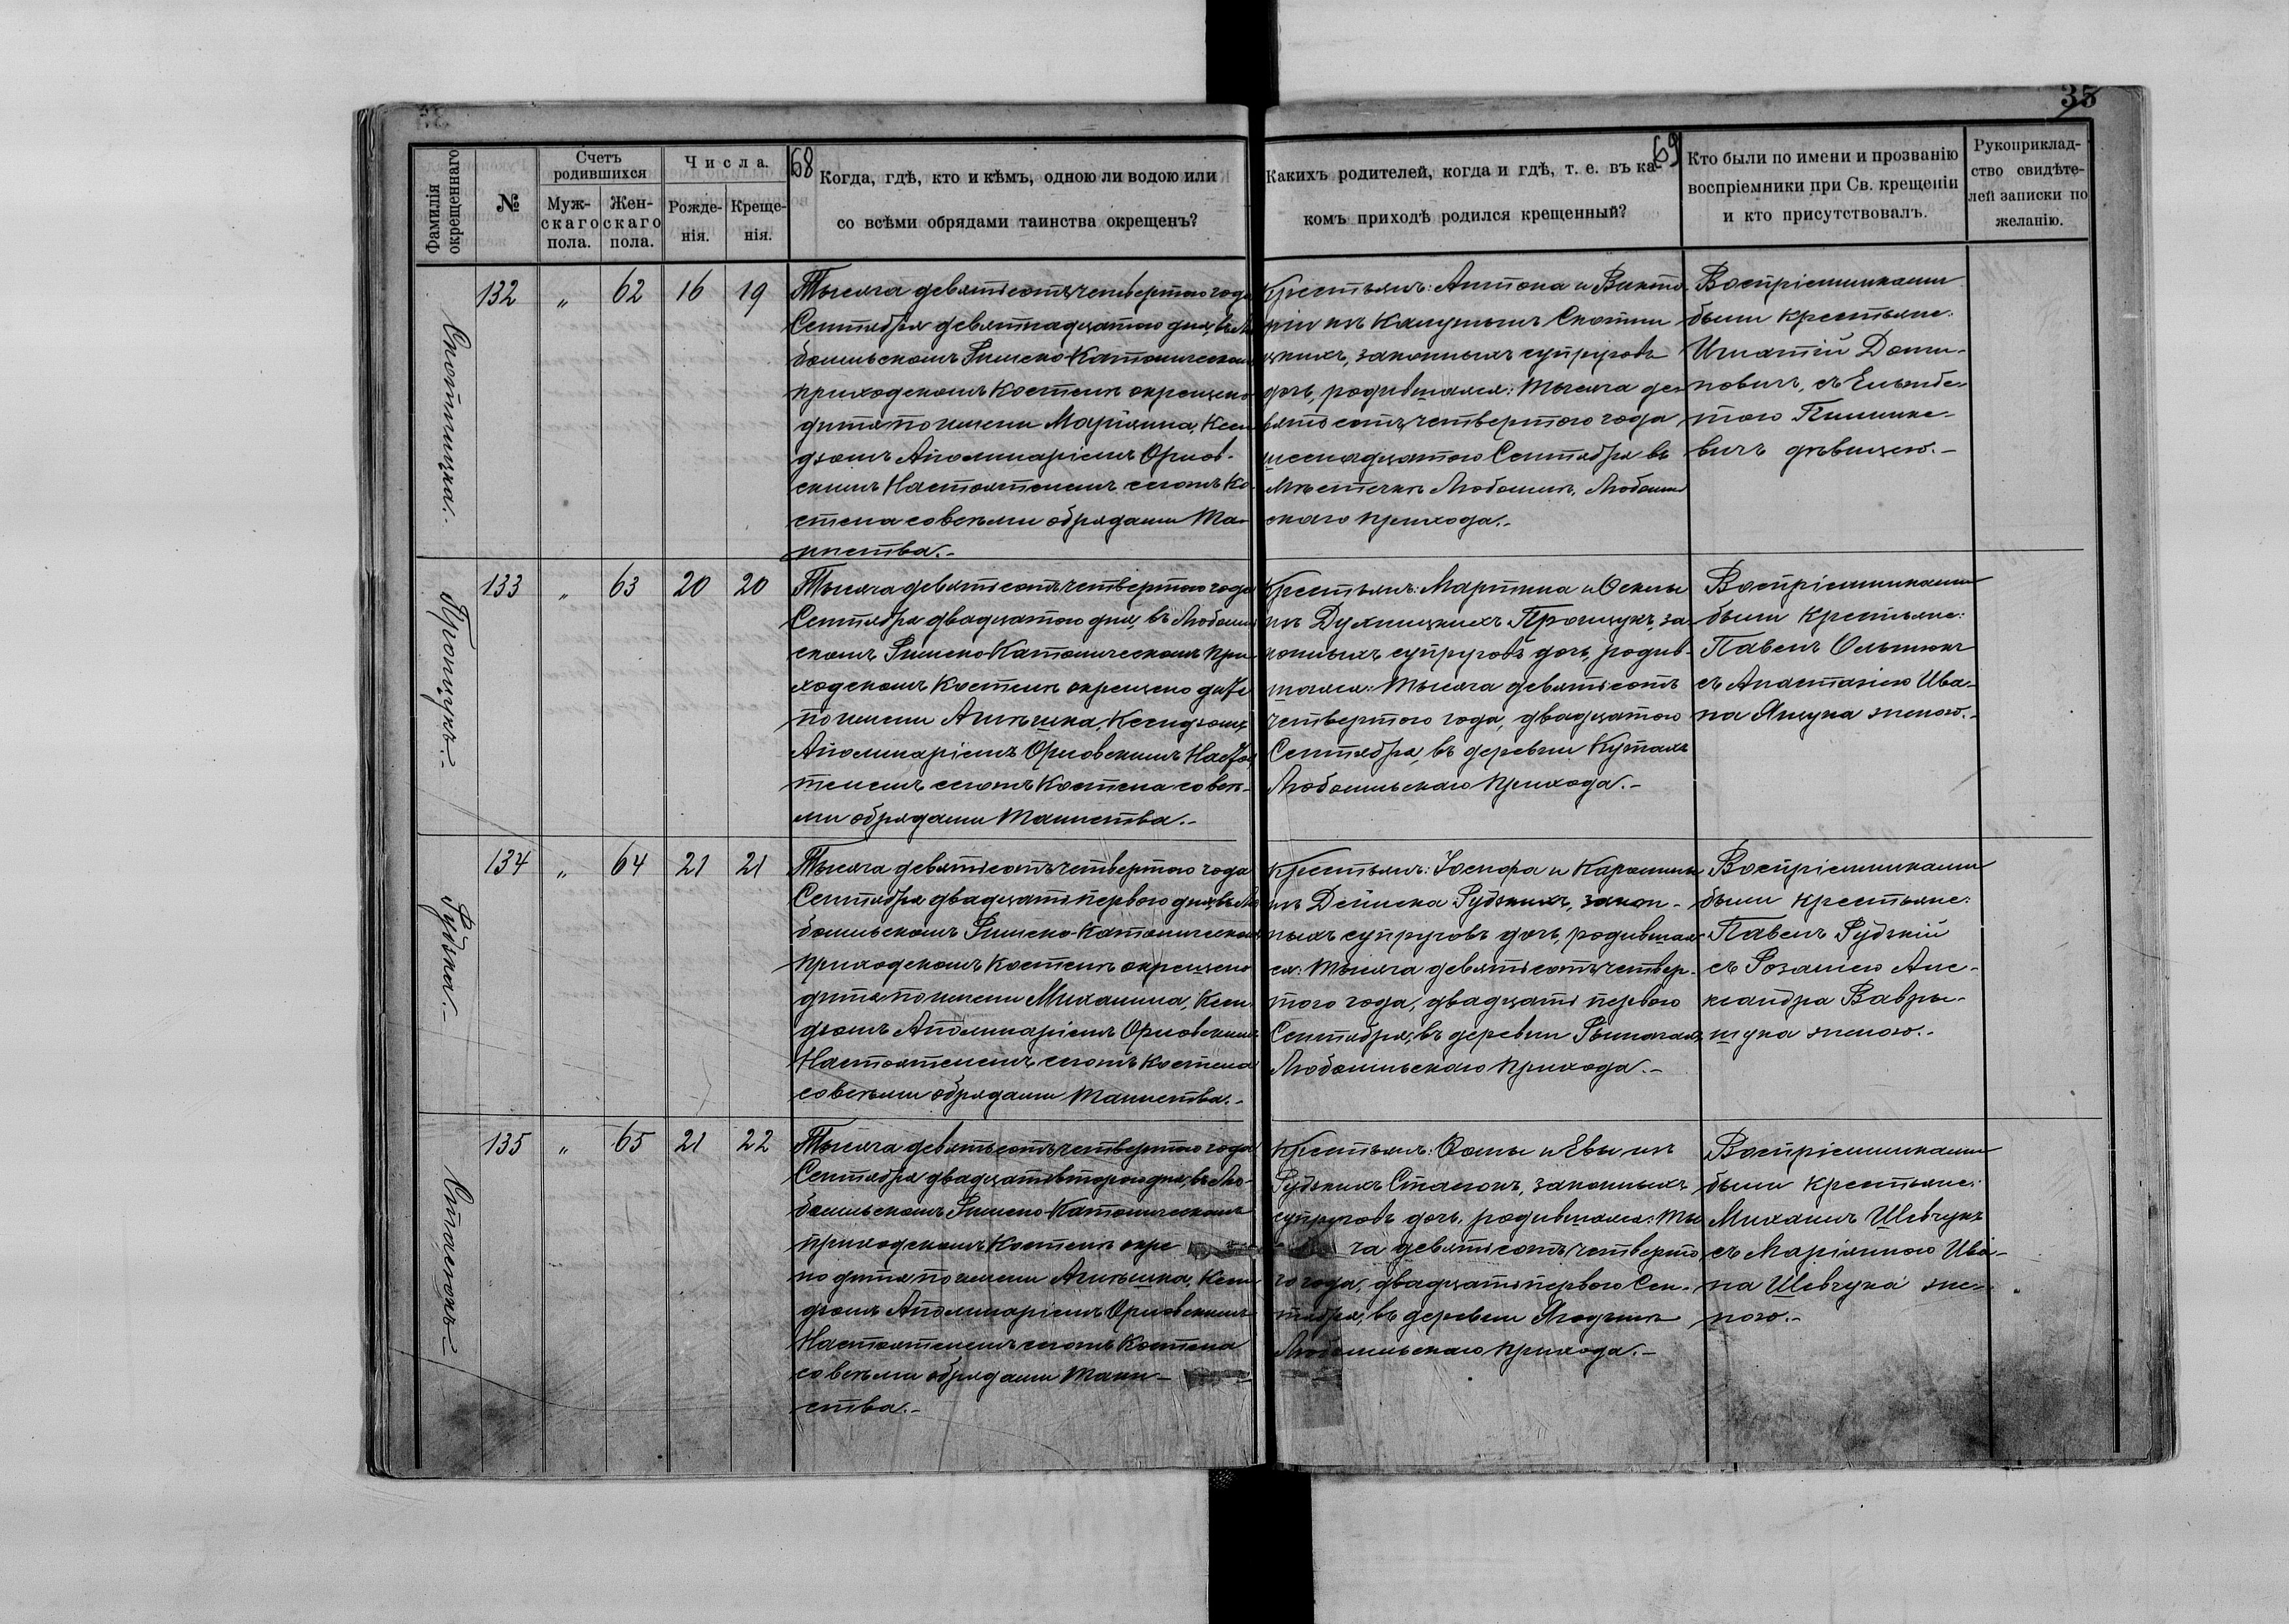 35
68
69
Фамилія окрещеннаго
№
Счетъ родившихся
Муж-
скаго
пола.
Жен-
скаго
пола.
Числа.
Рожде-
нія.
Креще-
нія.
Когда, гдѣ, кто и кѣмъ, одною ли водою или
со всѣми обрядами таинства окрещенъ?
Какихъ родителей, когда и гдѣ, т. е. въ ка-
комъ приходѣ родился крещенный?
Кто были по имени и прозванію
воспріемники при Св. крещеніи
и кто присутствовалъ.
Рукоприклад-
ство свидѣте-
лей записки по
желанію.
Скотницка.
132 " 62 16 19
Тысяча девятьсотъ четвертаго года
Сентября девятнадцатаго дня, въ Лю
бомльскомъ Римско Католическомъ
приходскомъ Костелѣ окрещено
дитя по имени Маріянна, Ксен
дзомъ Аполинаріемъ Орлов-
скимъ Настоятелемъ сегожъ Ко-
стела со всѣми обрядами Та-
инства.-
Крестьянъ: Антона и Викто
ріи изъ Скотни
цкихъ, законныхъ супруговъ
дочь, родившаяся: Тысяча де-
вятьсотъ четвертаго года
шестнадцатаго Сентября въ
Мѣстечкѣ Любомлѣ, Любомль
скаго прихода.-
Воспріемниками
были крестьяне:
Игнатій Доми-
новичъ, съ Ельжбе-
тою
вичъ дѣвицею.-
Процукъ.-
133 " 63 20 20
Тысяча девятьсотъ четвертаго года
Сентября двадцатаго дня, въ Любомль
скомъ Римско Католическомъ При
ходскомъ Костелѣ окрещено дитя
по имени Агнѣшка, Ксендзомъ
Аполинаріемъ Орловскимъ Настоя
телемъ сегожъ Костела со всѣ-
ми обрядами Таинства.-
Крестьянъ: Мартина и Феклы
изъ Процукъ, за-
конныхъ супруговъ дочь, родив-
шаяся: Тысяча девятьсотъ
четвертаго года, двадцатаго
Сентября, въ деревни Кутахъ
Любомльскаго прихода.-
Воспріемниками
были крестьяне:
Павелъ
съ Анастазіею Ива-
на Ящука женою.-
Рудзка.-
134 " 64 21 21
Тысяча девятьсотъ четвертаго года
Сентября двадцать перваго дня, въ Лю
бомльскомъ Римско-Католическомъ
приходскомъ Костелѣ окрещено
дитя по имени Михалина, Ксен
дзомъ Аполинаріемъ Орловскимъ
Настоятелемъ сегожъ Костела
со всѣми обрядами Таинства.-
Крестьянъ: Іосифа и Каролины
изъ Рудзкихъ, закон-
ныхъ супруговъ дочь, родившая
ся: Тысяча девятьсотъ четвер-
таго года, двадцать перваго
Сентября, въ деревни
Любомльскаго прихода.-
Воспріемниками
были крестьяне:
Павелъ Рудзкій
съ Розалею Але-
ксандра Вавры-
щука женою.-
Стасюкъ.-
135 " 65 21 22
Тысяча девятьсотъ четвертаго года
Сентября двадцать втораго дня, въ Лю-
бомльскомъ Римско-Католическомъ
приходскомъ Костелѣ окре
но дитя по имени Агнѣшка, Ксен
дзомъ Аполинаріемъ Орловскимъ
Настоятелемъ сегожъ Костела
со всѣми обрядами Таин-
ства.-
Крестьянъ: Фомы и Евы изъ
Рудзкихъ Стасюкъ, законныхъ
супруговъ дочь, родившаяся: Ты
ча девятьсотъ четверта
го года, двадцать перваго Сен-
тября, въ деревни Ягодинѣ
Любомльскаго прихода.-
Воспріемниками
были крестьяне:
Михаилъ Шевчукъ
съ Маріянною Ива-
на Шевчука же-
ною.-